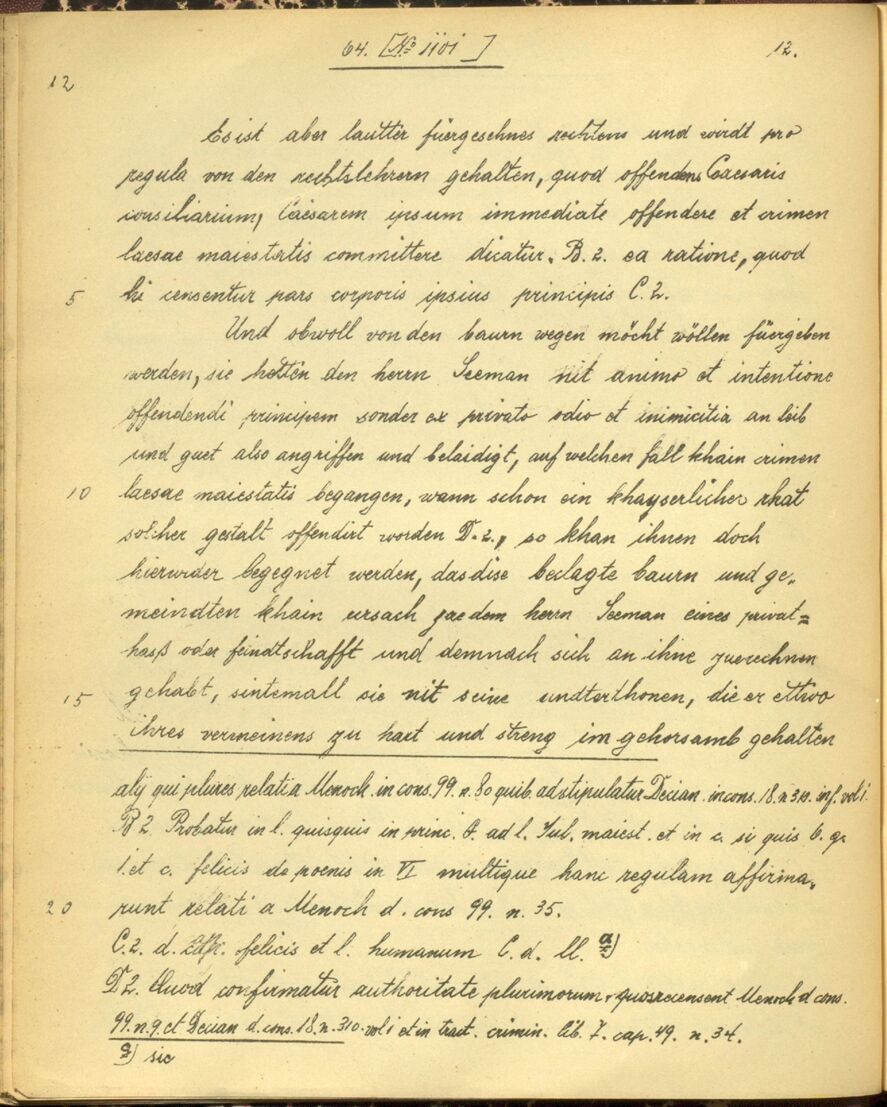 64. [No 1101]
12.
12
Es ist aber lautter füergesehnes rechtens und wirdt pro
regula von den rechtslehrern gehalten, quod offendens Caesaris
consiliarium, Caesarem ipsum immediate offendere et crimen
laesae maiestatis committere dicatur. B. 2. ea ratione, quod
5 hi censentur pars corporis ipsius principis C. 2.
Und obwoll von den baurn wegen möcht wöllen füergeben
werden, sie hetten den herrn Seeman nit animo et intentione
offendendi principem sonder ex privato odio et inimicitia an leib
und guet also angriffen und belaidigt, auf welchen fall khain crimen
10 laesae maiestatis begangen, wann schon ein khayserlicher rhat
solcher gestalt offendirt worden D. 2., so khan ihnen doch
hierwider begegnet werden, das dise beclagte baurn und ge„
meindten khain ursach zue dem herrn Seeman eines privat=
hass oder feindtschafft und demnach sich an ihne zuerechnen
15 gehabt, sintemall sie nit seine undterthonen, die er ettwo
ihres vermeinens zu hart und streng im gehorsamb gehalten
alij qui plures relati a Menoch. in cons. 99. n. 80 quib. adstipulatur Decian. in cons. 18. n 310. inf. vol 1.
B 2. Probatur in l. quisquis in princ. C. ad l. Jul. maiest. et in c. si quis 6. q.
1. et c. felicis de poenis in VI multique hanc regulam affirma„
20 runt relati a Menoch d. cons 99. n. 35.
C. 2. d. felicis et l. humanum C. d. ll. a)
D 2. Quod confirmatur authoritate plurimorum, quos recensent Menoch d cons.
99. n. 9. et Decian d. cons. 18. n. 310. vol 1 et in tract. crimin. lib. 7. cap. 49. n. 34.
a) sic